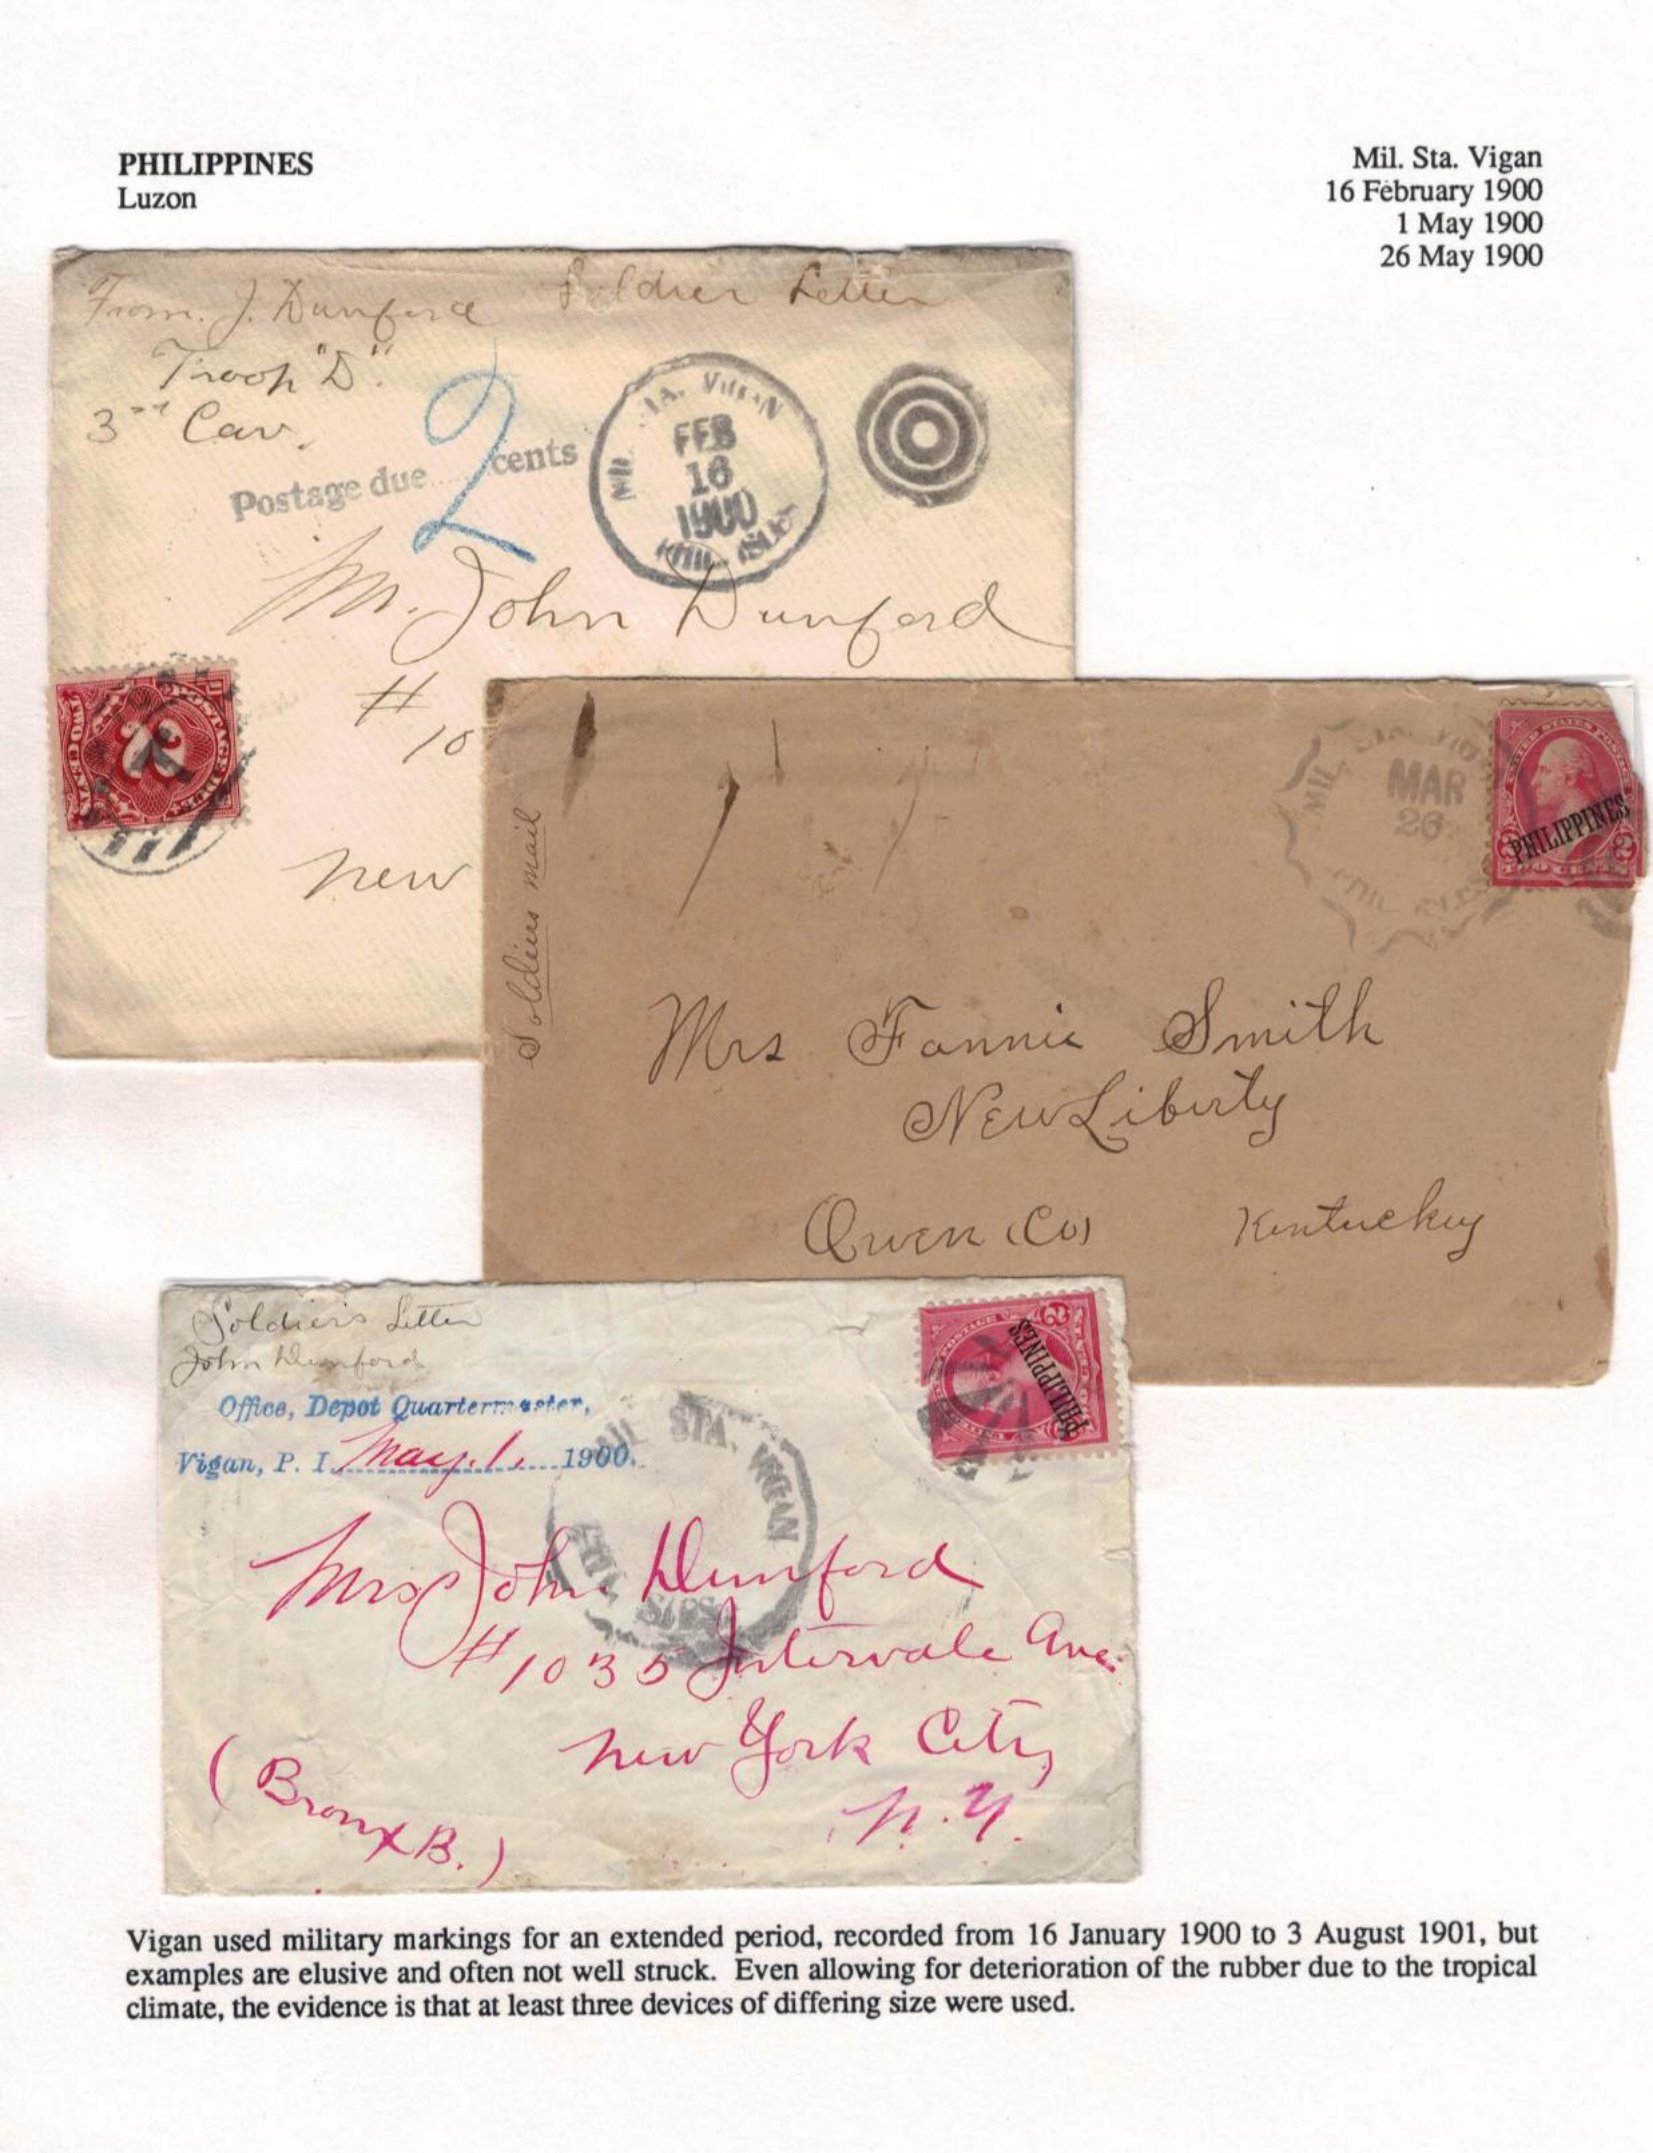 PHILIPPINES
Luzon
Mil. Sta. Vigan
16 February 1900
1 May 1900
26 May 1900
From. J. Dunford
Soldier Letter
Troop "D".
3rd Cav.
2
Postage due......cents
MIL. STA. VIGAN
FEB
16
1900
PHIL. ISL'DS
Mr. John Dunford
# 10
New
POSTAGE DUE
2
TWO CENTS
Soldiers mail
MIL. STA. VIGAN
MAR
26
PHIL. ISLDS
UNITED STATES POSTAGE
PHILIPPINES
2
Mrs Fannie Smith
New Liberty
Owen (Co) Kentucky
Soldier's Letter
John Dunford
Office, Depot Quartermaster,
Vigan, P. I. May. 1. 1900.
MIL. STA. VIGAN
PHIL. ISLDS
PHILIPPINES
2
Mrs John Dunford
# 1035 Intervale Ave.
New York City
N. Y.
(Bronx B.)
Vigan used military markings for an extended period, recorded from 16 January 1900 to 3 August 1901, but
examples are elusive and often not well struck. Even allowing for deterioration of the rubber due to the tropical
climate, the evidence is that at least three devices of differing size were used.